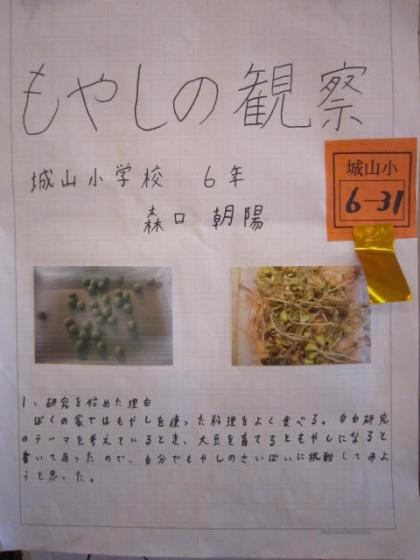 もやしの観察
城山小学校 6年
森口 朝陽
城山小
6-31
1、研究を始めた理由
ぼくの家ではもやしを使った料理をよく食べる。自由研究
のテーマを考えているとき、大豆を育てるともやしになると
書いてあったので、自分でもやしのさいばいに挑戦してみよ
うと思った。